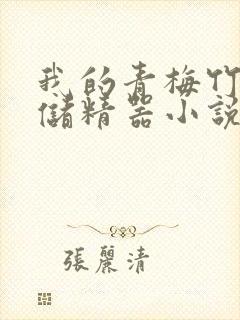 我的青梅竹
儲精器小説
張麗清